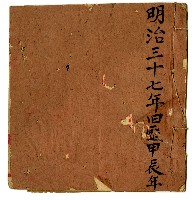 明治三十七年旧暦甲辰年